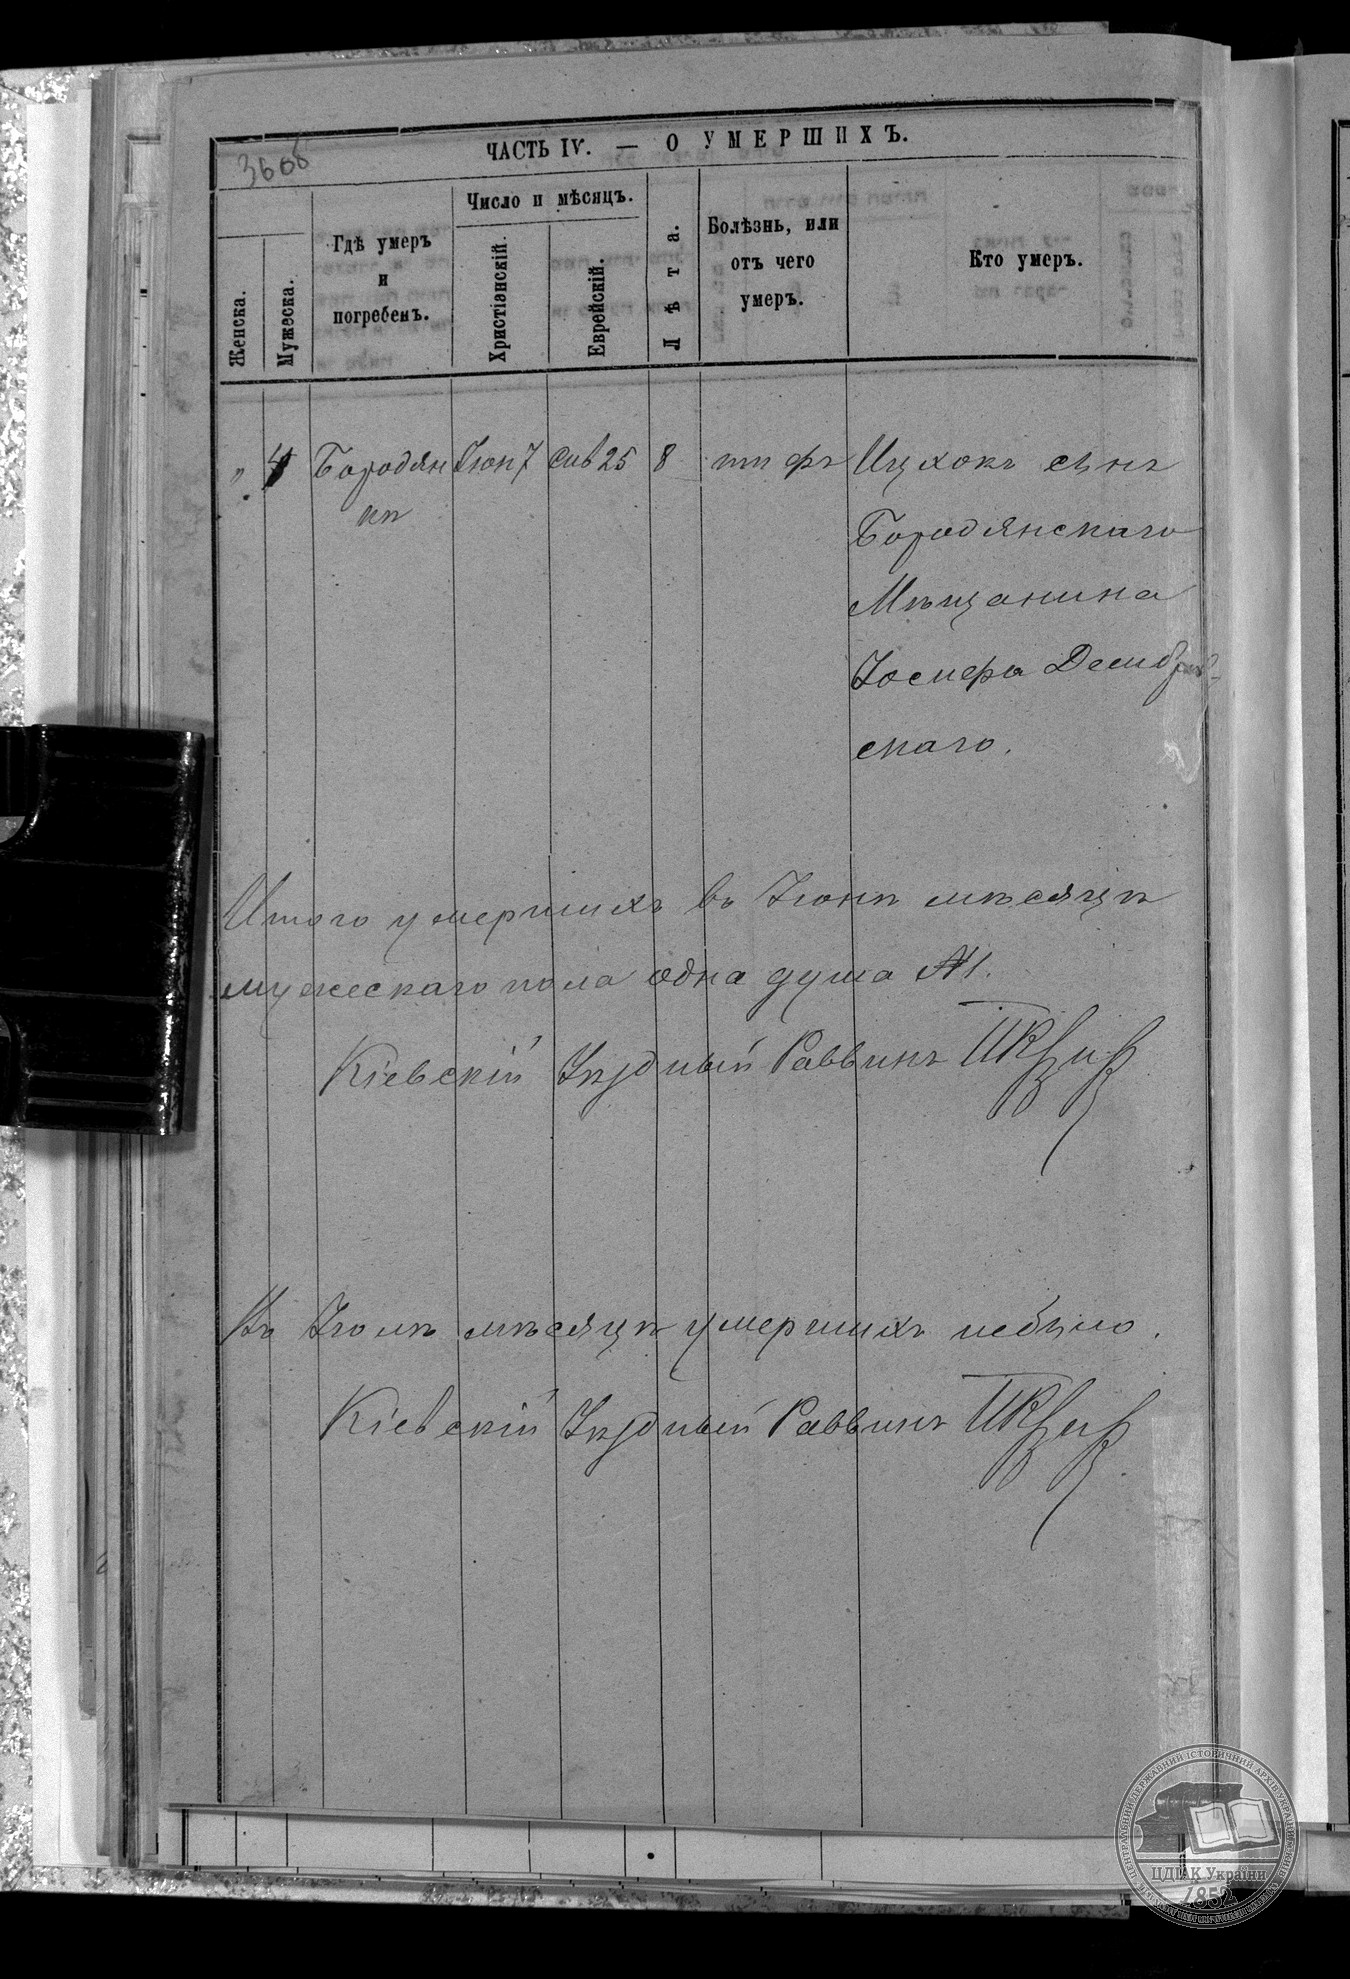 366об
ЧАСТЬ IV. — О УМЕРШИХЪ.
Женска.
Мужеска.
Гдѣ умеръ
и
погребенъ.
Число и мѣсяцъ.
Христіанскій.
Еврейскій.
Лѣта.
Болѣзнь, или
отъ чего
умеръ.
Кто умеръ.
" 4 Бородян Іюн 7 сив 25 8 тифъ Ицхокъ сынъ
кѣ
Бородянскаго
Мѣщанина
Іосифа
скаго.
Итого умершихъ въ Іюнѣ мѣсяцѣ
мужескаго пола одна душа №1.
Кіевскій Уѣздный Раввинъ
Въ Іюлѣ мѣсяцѣ умершихъ небыло.
Кіевскій Уѣздный Раввинъ
ЦЕНТРАЛЬНИЙ ДЕРЖАВНИЙ ІСТОРИЧНИЙ АРХІВ УКРАЇНИ
ЦДІАК України
1852